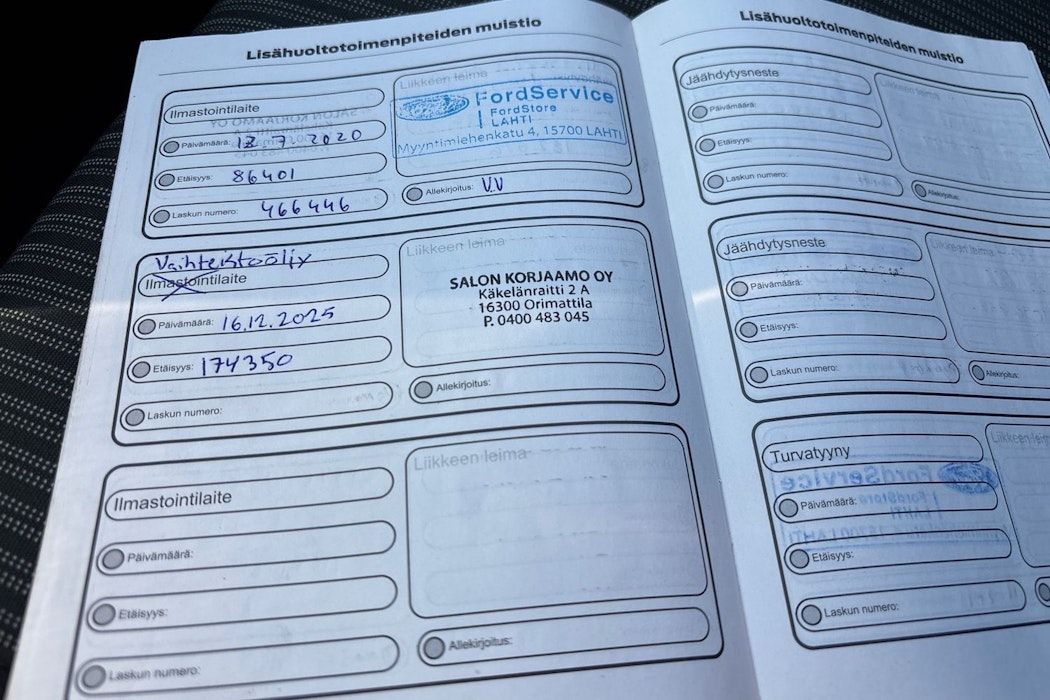 Lisähuoltotoimenpiteiden muistio
Ilmastointilaite
Päivämäärä: 13 7. 2020
Etäisyys: 86401
Laskun numero: 466446
Liikkeen leima
FordService
FordStore
LAHTI
Myyntimiehenkatu 4, 15700 LAHTI
Allekirjoitus: V.V
Vaihteistoöljy
Ilmastointilaite
Päivämäärä: 16.12.2025
Etäisyys: 174350
Laskun numero:
Liikkeen leima
SALON KORJAAMO OY
Käkelänraitti 2 A
16300 Orimattila
P. 0400 483 045
Allekirjoitus:
Ilmastointilaite
Päivämäärä:
Etäisyys:
Laskun numero:
Liikkeen leima
Allekirjoitus:
Lisähuoltotoimenpiteiden muistio
Jäähdytysneste
Päivämäärä:
Etäisyys:
Laskun numero:
Liikkeen leima
Allekirjoitus:
Jäähdytysneste
Päivämäärä:
Etäisyys:
Laskun numero:
Liikkeen leima
Allekirjoitus:
Turvatyyny
Päivämäärä:
Etäisyys:
Laskun numero:
Liikkeen leima